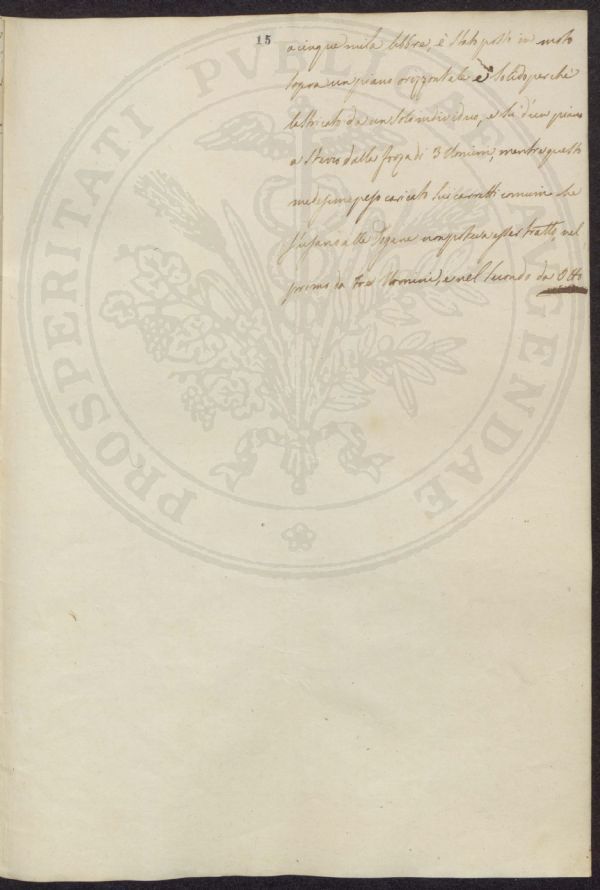 15
a cinque mila libbre, è stato posto in moto
sopra un piano orizzontale e solido perchè
lastricato da un solo individuo, e su d'un piano
a sterro dalla forza di 3 Uomini, mentre questo
medesimo peso caricato sui carretti comuni che
s'usano alle Dogane non poteva esser tratto, nel
primo da tre Uomini, e nel secondo da Otto
PROSPERITATI PUBLICAE AUGENDAE